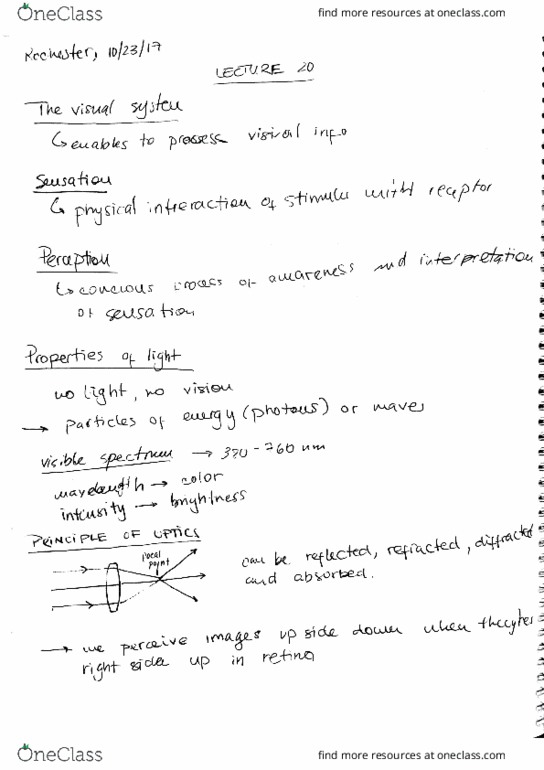 OneClass
find more resources at oneclass.com
Rochester, 10/23/17
LECTURE 20
The visual system
↳ enables to prosess visival info
Sensation
↳ physical interaction of stimulu with receptor
Perception
↳ concious process of awareness and interpretation
of sensation
Properties of light
no light, no vision
→ particles of energy (photons) or waves
visible spectrum → 370-760 nm
wavelength → color
intensity → brightness
PRINCIPLE OF OPTICS
focal
point
can be reflected, refracted, diffracted
and absorbed.
→ we perceive images up side down when
right side up in retina
OneClass
find more resources at oneclass.com